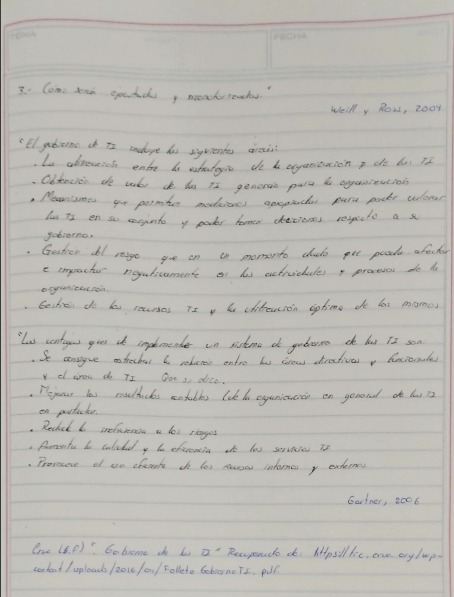 TEMA FECHA
3.- Cómo serán ejecutadas y monitorizadas."
Weill y Ross, 2004
"El gobierno de TI incluye las siguientes áreas:
. La alineación entre la estrategia de la organización y de las TI
. Obtención de valor de las TI generado para la organización
. Mecanismos que permitan mediciones apropiadas para poder valorar
las TI en su conjunto y poder tomar decisiones respecto a su
gobierno.
. Gestión del riesgo que en un momento dado que pueda afectar
e impactar negativamente en las actividades y procesos de la
organización.
. Gestión de los recursos TI y la utilización óptima de los mismos
"Las ventajas que de implementar un sistema de gobierno de las TI son:
. Se consigue estrechar la relación entre las áreas directivas y funcionales
y el área de TI
. Mejorar los resultados contables (de la organización en general de las TI
en particular.
. Reduce la a los riesgos
. Aumenta la calidad y la eficiencia de los servicios TI
. Promueve el uso eficiente de los recursos internos y externos
Gartner, 2006
Crue (S.F) ". Gobierno de las TI" Recuperado de: https://tic.crue.org/wp-
content/uploads/2016/01/Folleto GobiernoTI.pdf.